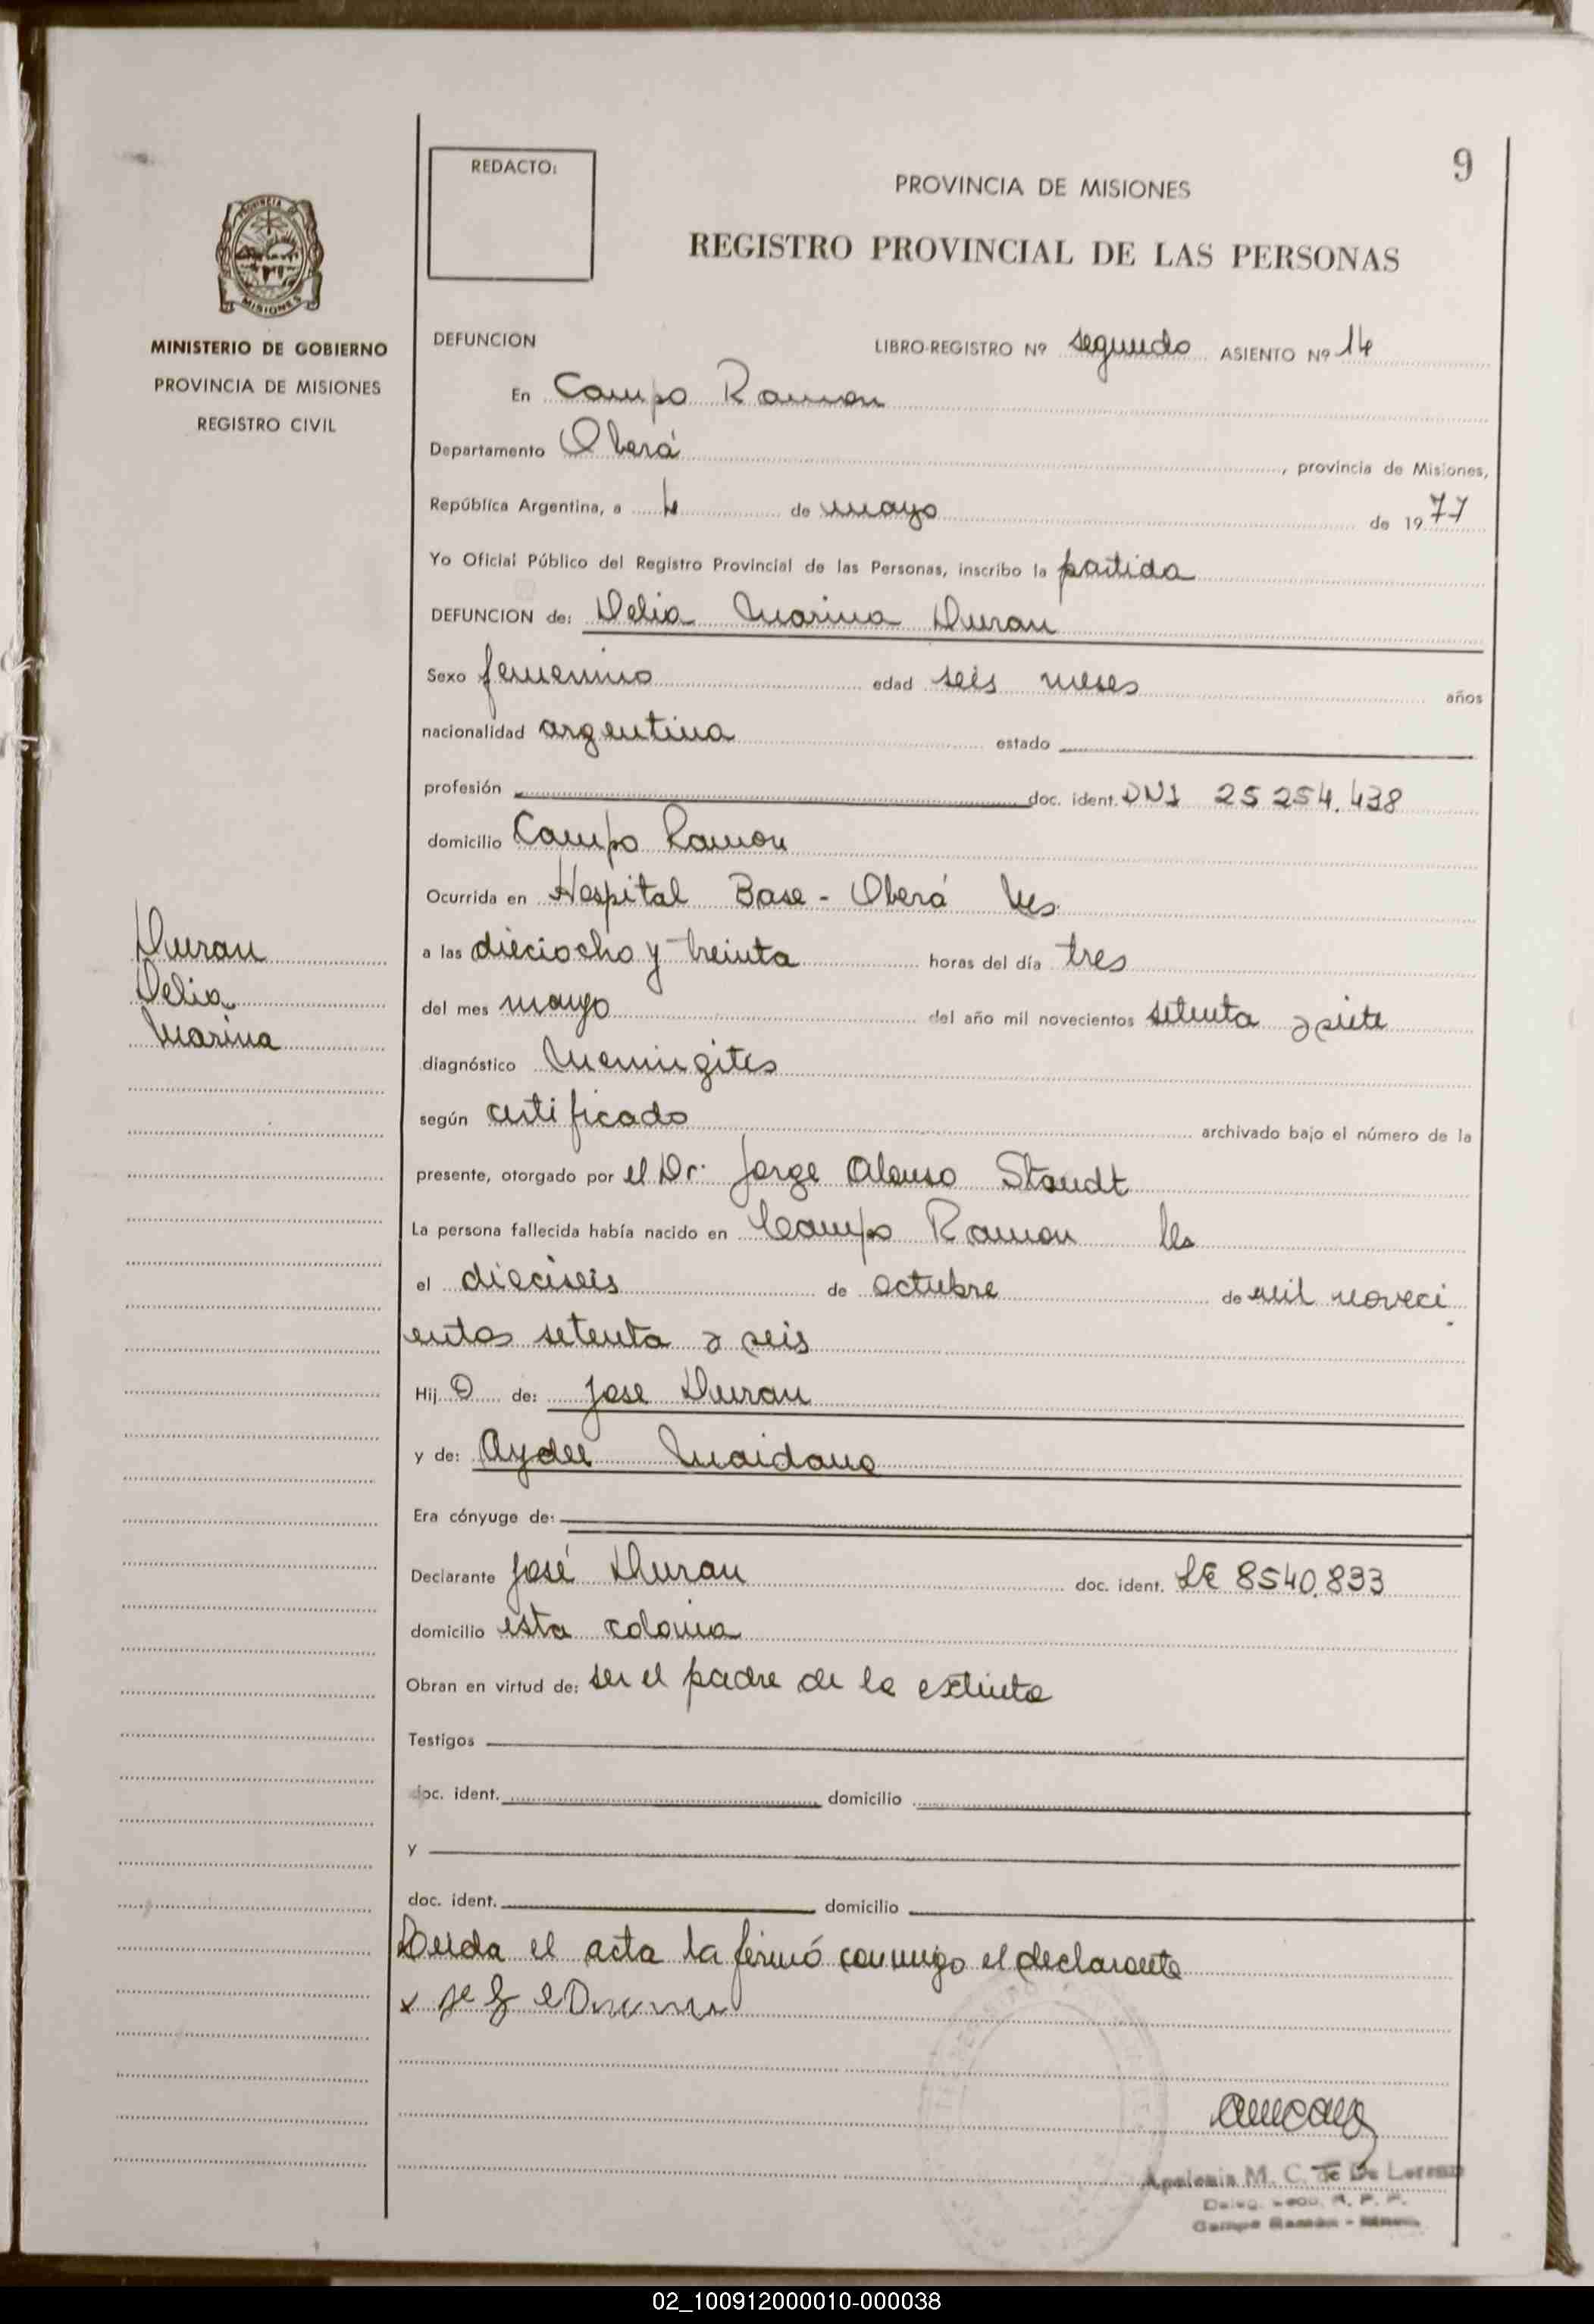 9
REDACTO:
PROVINCIA DE MISIONES
REGISTRO PROVINCIAL DE LAS PERSONAS
PROVINCIA DE
MISIONES
MINISTERIO DE GOBIERNO
PROVINCIA DE MISIONES
REGISTRO CIVIL
DEFUNCION LIBRO-REGISTRO Nº segundo ASIENTO Nº 14
En Campo Ramon
Departamento Oberá, provincia de Misiones,
República Argentina, a 4 de mayo de 1977
Yo Oficial Público del Registro Provincial de las Personas, inscribo la partida
DEFUNCION de: Delia Marina Duran
Sexo femenino edad seis meses años
nacionalidad argentina estado
profesión doc. ident. DNI 25 254.438
domicilio Campo Ramon
Ocurrida en Hospital Base - Oberá Mes
Duran
Delia
Marina
a las dieciocho y treinta horas del día tres
del mes mayo del año mil novecientos setenta y siete
diagnóstico Meningitis
según certificado archivado bajo el número de la
presente, otorgado por el Dr. Jorge Alonso Staudt
La persona fallecida había nacido en Campo Ramon Ms
el dieciseis de octubre de mil noveci
entos setenta y seis
Hij a de: Jose Duran
y de: Aydee Maidana
Era cónyuge de:
Declarante José Duran doc. ident. LE 8540.833
domicilio esta colonia
Obran en virtud de: ser el padre de la extinta
Testigos
doc. ident. domicilio
y
doc. ident. domicilio
Leida el acta la firmó conmigo el declarante
Apolonia M. C. de De Lorenz
Campo Ramón - Mnes.
02_100912000010-000038